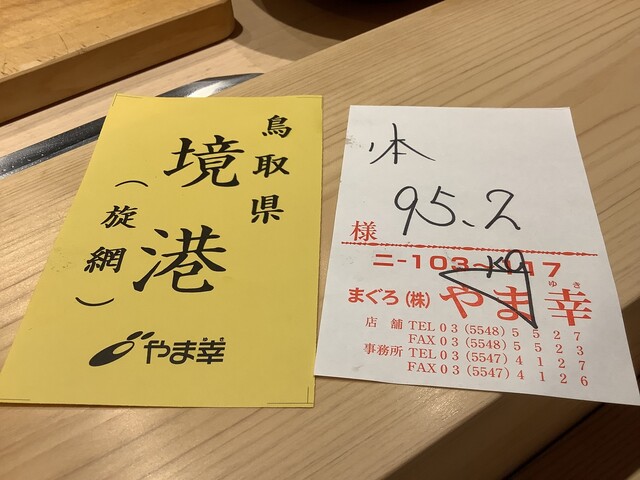 鳥取県
境港
（旋網）
やま幸
本
95.2
様
kg
まぐろ(株)やま幸
ゆき
店舗 TEL 03 (5548) 5527
FAX 03 (5548) 5523
事務所 TEL 03 (5547) 4127
FAX 03 (5547) 4126